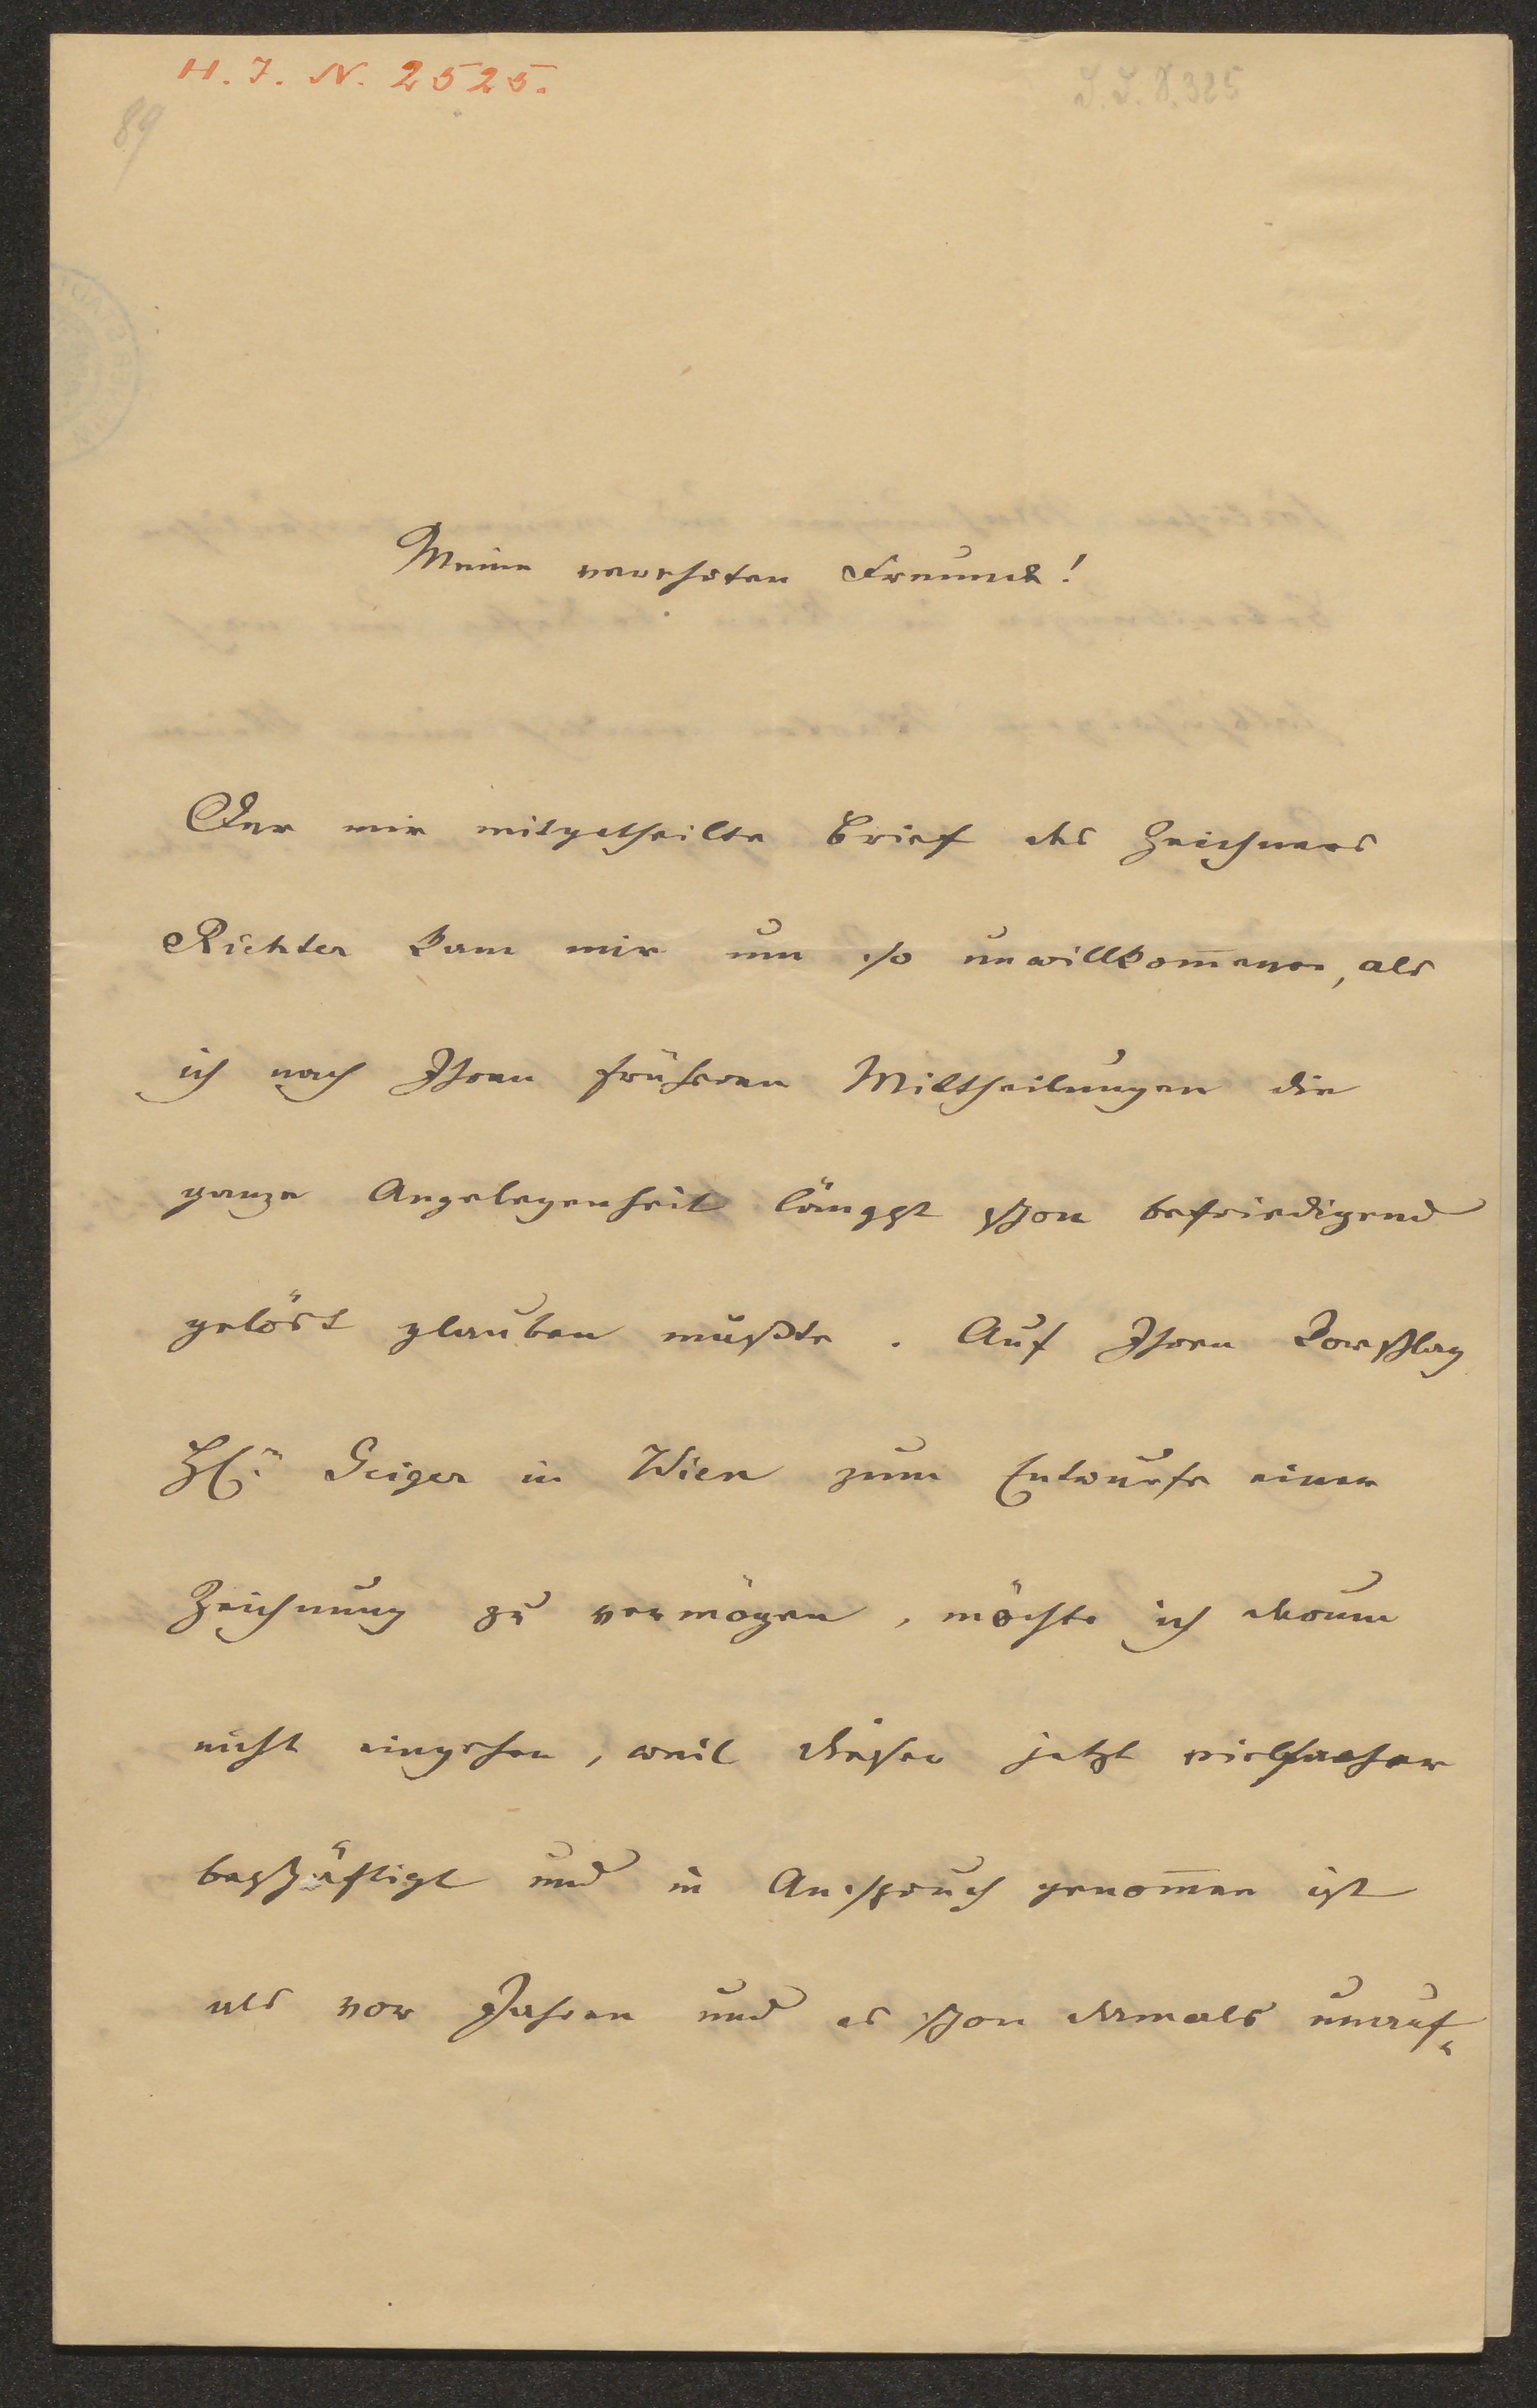 H. I. N. 2525.
I. I. 8.325
89
Meine verehrten Freunde!
Der mir mitgetheilte Brief des Zeichners
Richter kam mir um so unwillkom̅ener, als
ich nach Ihren früheren Mittheilungen die
ganze Angelegenheit längst schon befriedigend
gelöst glauben mußte. Auf Ihren Vorschlag
Geiger in Wien zum Entwurfe einer
Zeichnung zu vermögen, möchte ich darum
nicht eingehen, weil dieser jetzt vielfacher
beschäftigt und in Anspruch genom̅en ist
als vor Jahren und es schon damals unauf-